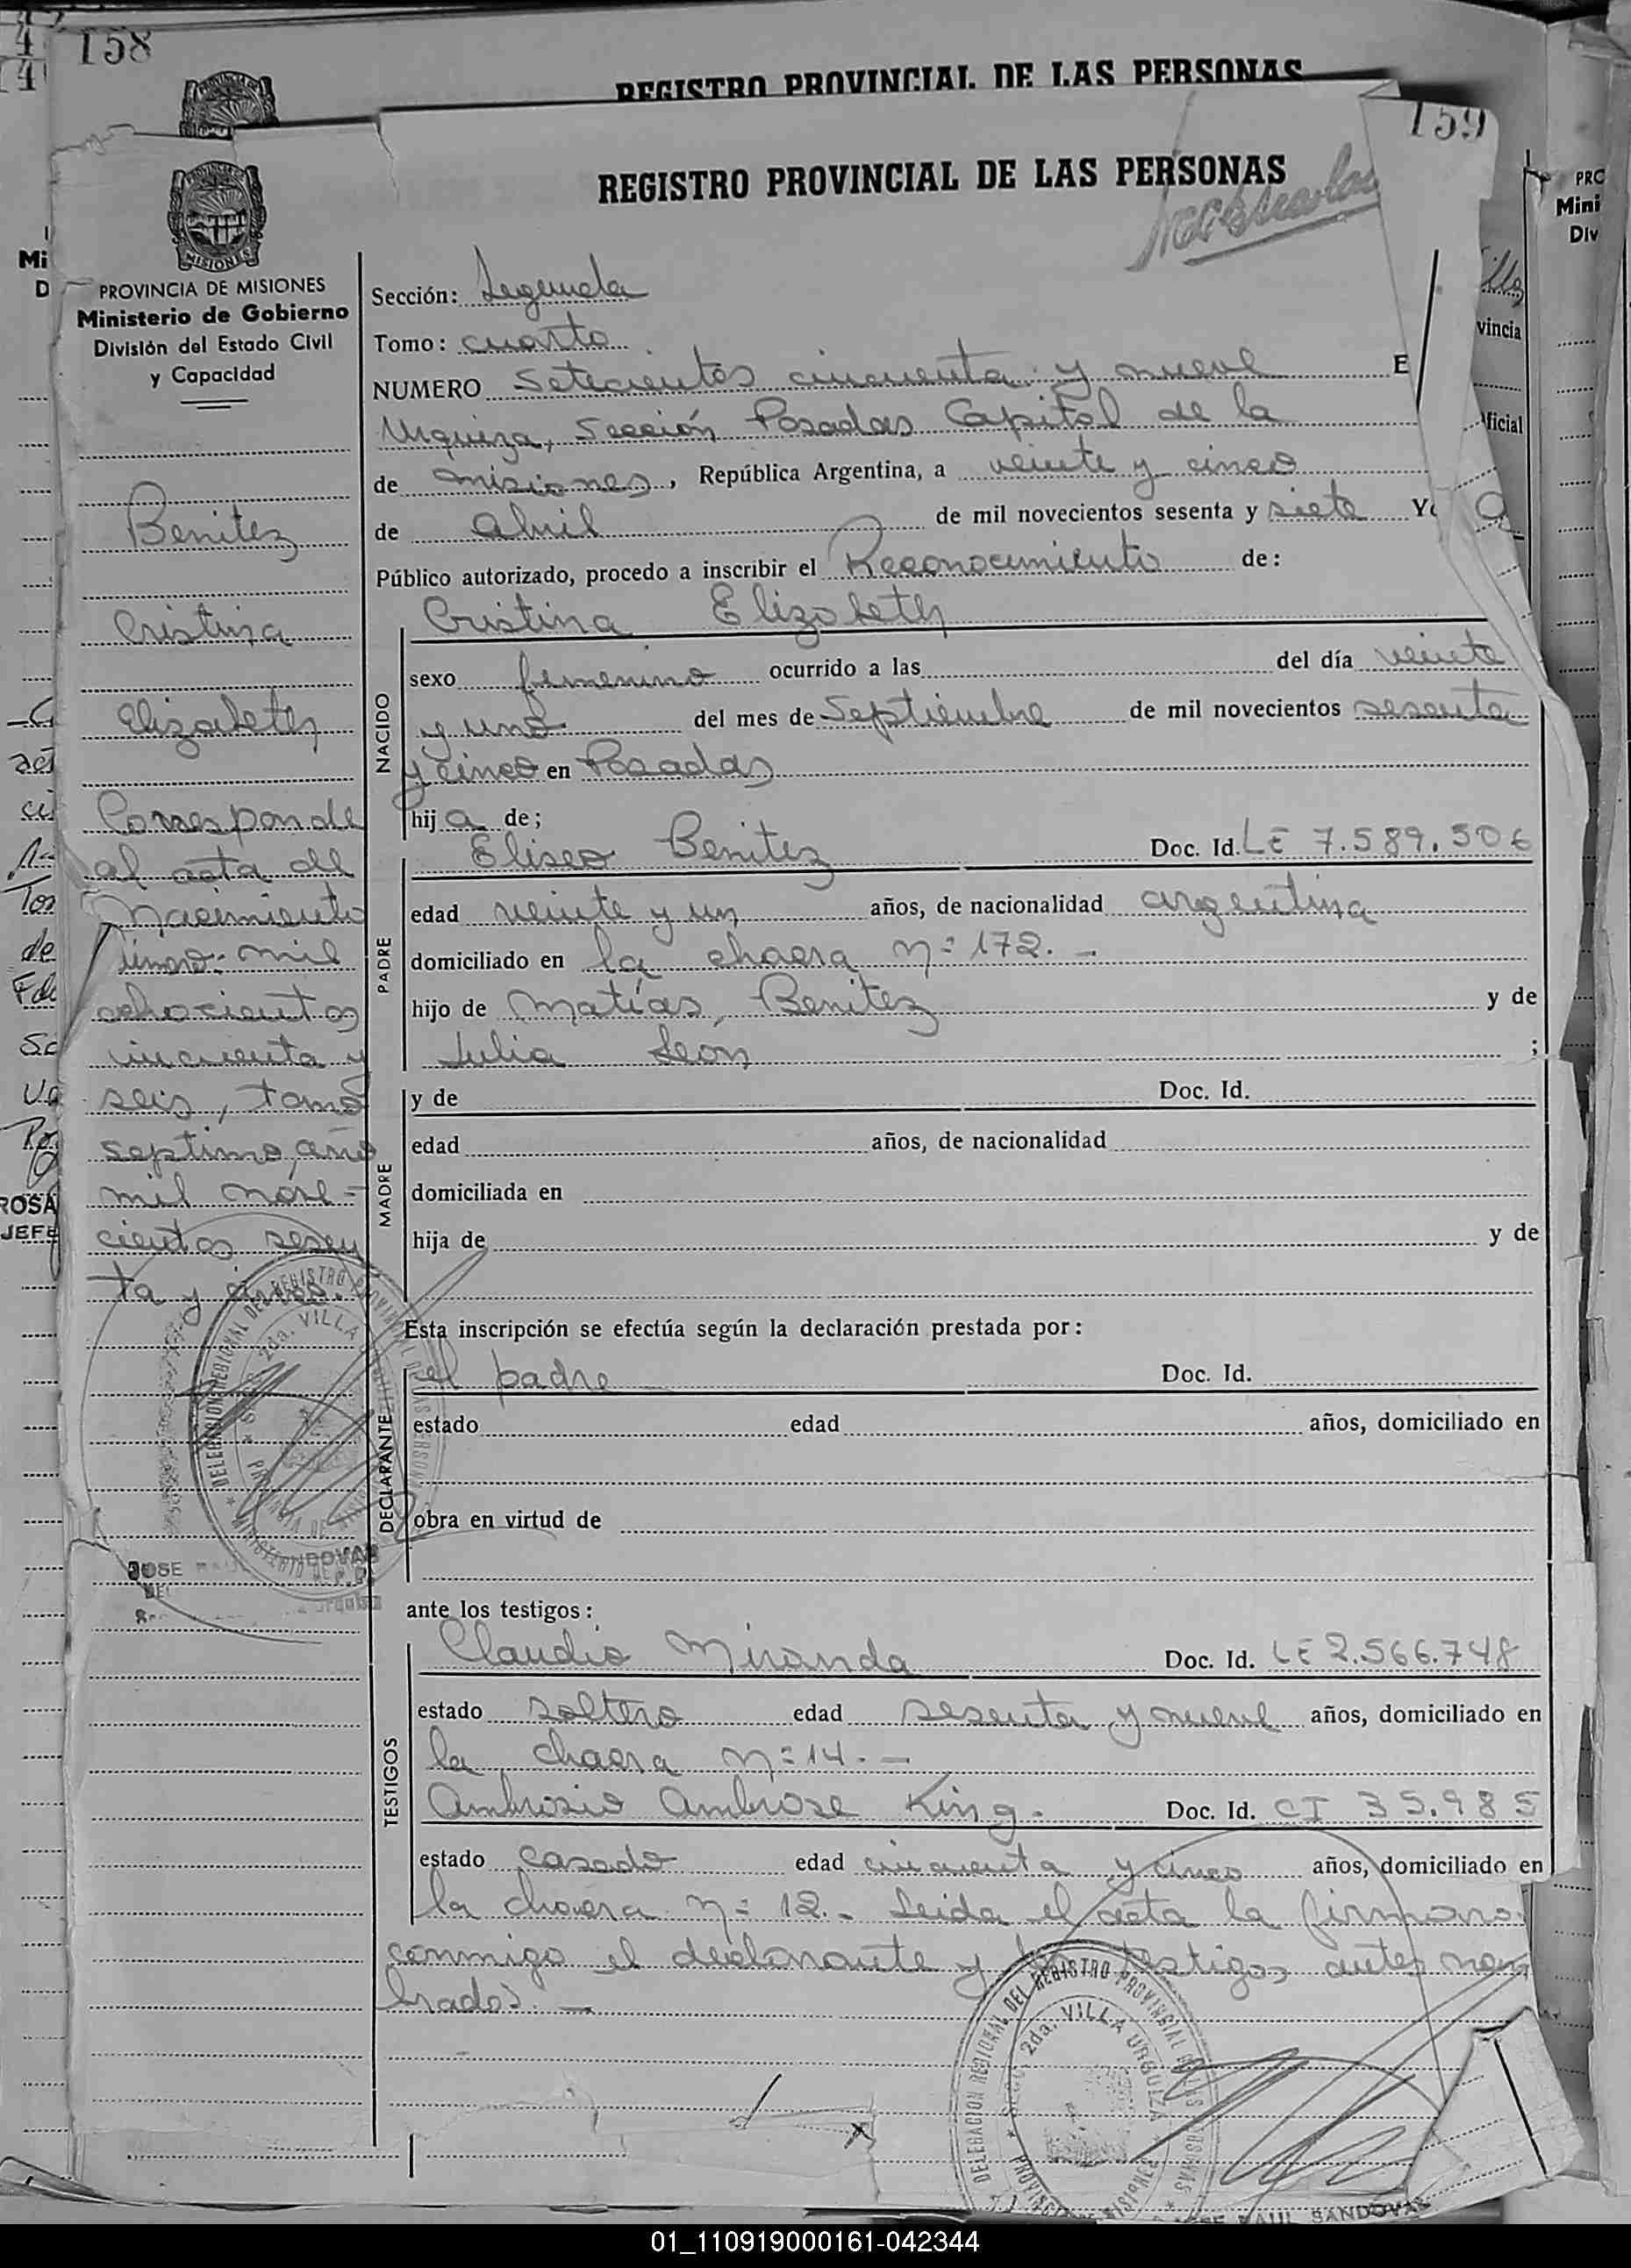 158
REGISTRO PROVINCIAL DE LAS PERSONAS
159
REGISTRO PROVINCIAL DE LAS PERSONAS
MISIONES
PROVINCIA DE MISIONES
Ministerio de Gobierno
División del Estado Civil
y Capacidad
Benitez
Cristina
Elizabeth
Corresponde
al acta de
Nacimiento
mil
ochocientos
cincuenta y
seis, tomo
septimo, año
mil nove-
cientos sesen
ta y cinco.
Sección: Segunda
Tomo: cuarto
NUMERO Setecientos cincuenta y nueve E
Urquiza, Sección Posadas Capital de la
de misiones, República Argentina, a veinte y cinco
de abril de mil novecientos sesenta y siete Yo
Público autorizado, procedo a inscribir el Reconocimiento de:
Cristina Elizabeth
NACIDO
sexo femenino ocurrido a las del día veinte
y uno del mes de Septiembre de mil novecientos sesenta
y cinco en Posadas
hija de;
PADRE
Eliseo Benitez Doc. Id. LE 7.589.506
edad veinte y un años, de nacionalidad argentina
domiciliado en la chacra n= 172. -
hijo de Matías Benitez y de
Julia Leon ;
MADRE
y de Doc. Id.
edad años, de nacionalidad
domiciliada en
hija de y de
Esta inscripción se efectúa según la declaración prestada por:
DECLARANTE
el padre Doc. Id.
estado edad años, domiciliado en
obra en virtud de
ante los testigos:
TESTIGOS
Claudio Miranda Doc. Id. LE 2.566.748
estado soltero edad sesenta y nueve años, domiciliado en
la chacra n= 14. -
Ambrosio Ambrose King. Doc. Id. CI 35.985
estado casado edad cincuenta y cinco años, domiciliado en
la chacra n= 12. - Leida el acta la firman
conmigo el declarante y los testigos antes nom
brados. -
DELEGACION REGIONAL DEL REGISTRO PROVINCIAL DE LAS PERSONAS
SECC. 2da. VILLA URQUIZA
PROVINCIA DE MISIONES
JOSE RAUL SANDOVAL
01_110919000161-042344